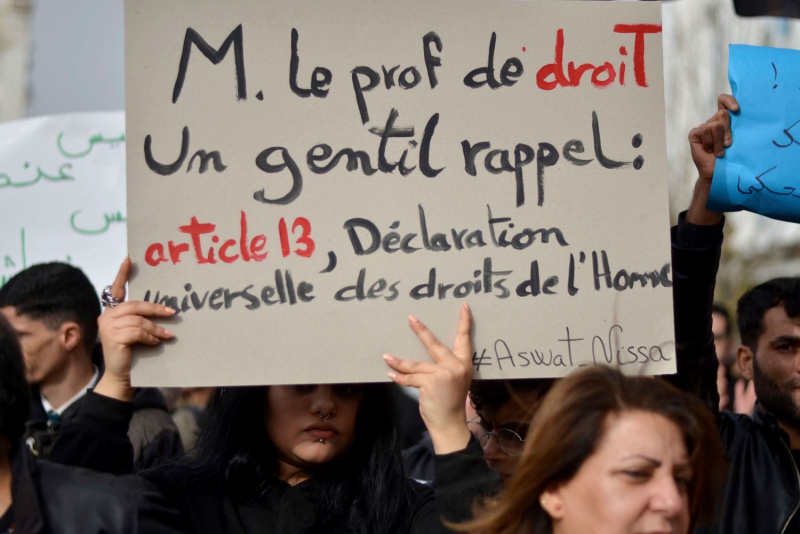 M. Le prof de droiT
Un gentil rappel:
article 13, Déclaration
universelle des droits de l'Homme
#Aswat_Nissa